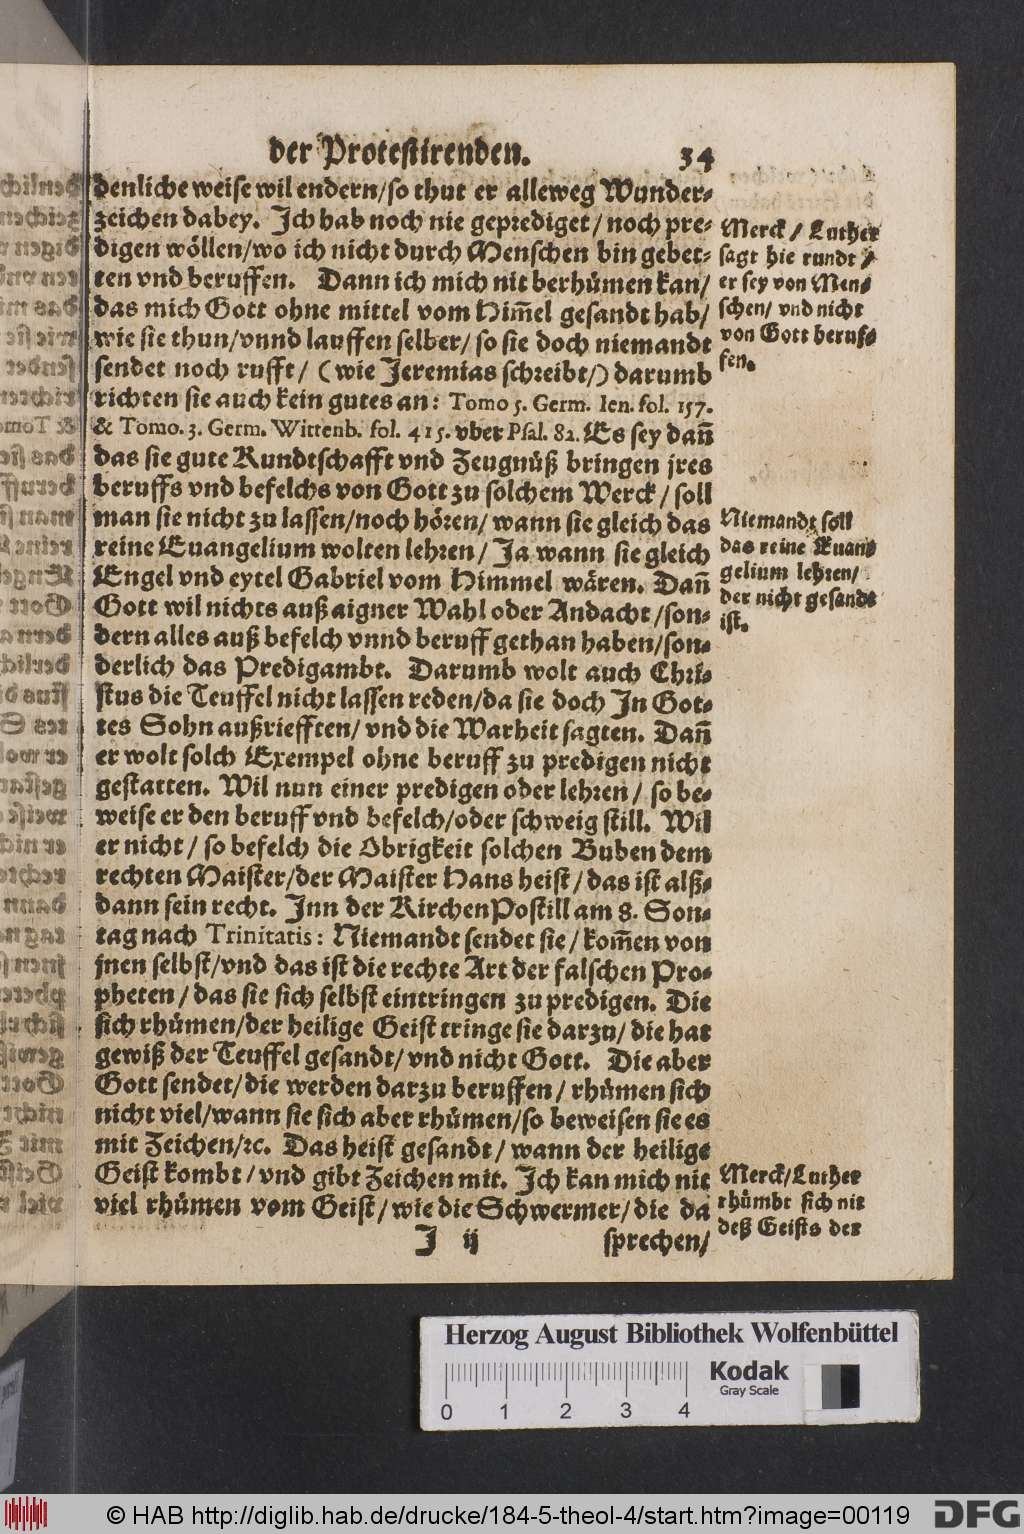 der Protestirenden. 34
denliche weise wil endern/so thut er alleweg Wunder-
zeichen dabey. Ich hab noch nie geprediget / noch pre-
digen wöllen/wo ich nicht durch Menschen bin gebet-
ten vnd beruffen. Dann ich mich nit berhümen kan/
das mich Gott ohne mittel vom Him̄el gesandt hab/
wie sie thun/vnnd lauffen selber/ so sie doch niemandt
sendet noch rufft/ (wie Jeremias schreibt/) darumb
richten sie auch kein gutes an: Tomo 5. Germ. Ien. fol. 157.
& Tomo. 3. Germ. Wittenb. fol. 415. vber Psal. 82. Es sey dañ
das sie gute Kundtschafft vnd Zeugnüß bringen jres
beruffs vnd befelchs von Gott zu solchem Werck / soll
man sie nicht zu lassen/noch hören/ wann sie gleich das
reine Euangelium wolten lehren/ Ja wann sie gleich
Engel vnd eytel Gabriel vom Himmel wären. Dañ
Gott wil nichts auß aigner Wahl oder Andacht /son-
dern alles auß befelch vnnd beruff gethan haben/son-
derlich das Predigambt. Darumb wolt auch Chri-
stus die Teuffel nicht lassen reden/da sie doch In Got-
tes Sohn außriefften/ vnd die Warheit sagten. Dañ
er wolt solch Exempel ohne beruff zu predigen nicht
gestatten. Wil nun einer predigen oder lehren/ so be-
weise er den beruff vnd befelch/oder schweig still. Wil
er nicht / so befelch die Obrigkeit solchen Buben dem
rechten Maister/der Maister Hans heist/ das ist alß-
dann sein recht. Inn der KirchenPostill am 8. Son-
tag nach Trinitatis: Niemandt sendet sie / kom̄en von
jnen selbst/vnd das ist die rechte Art der falschen Pro-
pheten / das sie sich selbst eintringen zu predigen. Die
sich rhümen/der heilige Geist tringe sie darzu/ die hat
gewiß der Teuffel gesandt/ vnd nicht Gott. Die aber
Gott sendet/die werden darzu beruffen / rhümen sich
nicht viel/wann sie sich aber rhümen/so beweisen sie es
mit Zeichen/ꝛc. Das heist gesandt / wann der heilige
Geist kombt / vnd gibt Zeichen mit. Ich kan mich nit
viel rhümen vom Geist/ wie die Schwermer/ die da
I ij sprechen/
Merck / Luther
sagt hie rundt /
er sey von Men-
schen/ vnd nicht
von Gott beruf-
fen.
Niemandt soll
das reine Euan-
gelium lehren/
der nicht gesandt
ist.
Merck/ Luther
rhümbt sich nit
deß Geists der
Herzog August Bibliothek Wolfenbüttel
Kodak
Gray Scale
0 1 2 3 4
© HAB http://diglib.hab.de/drucke/184-5-theol-4/start.htm?image=00119
DFG